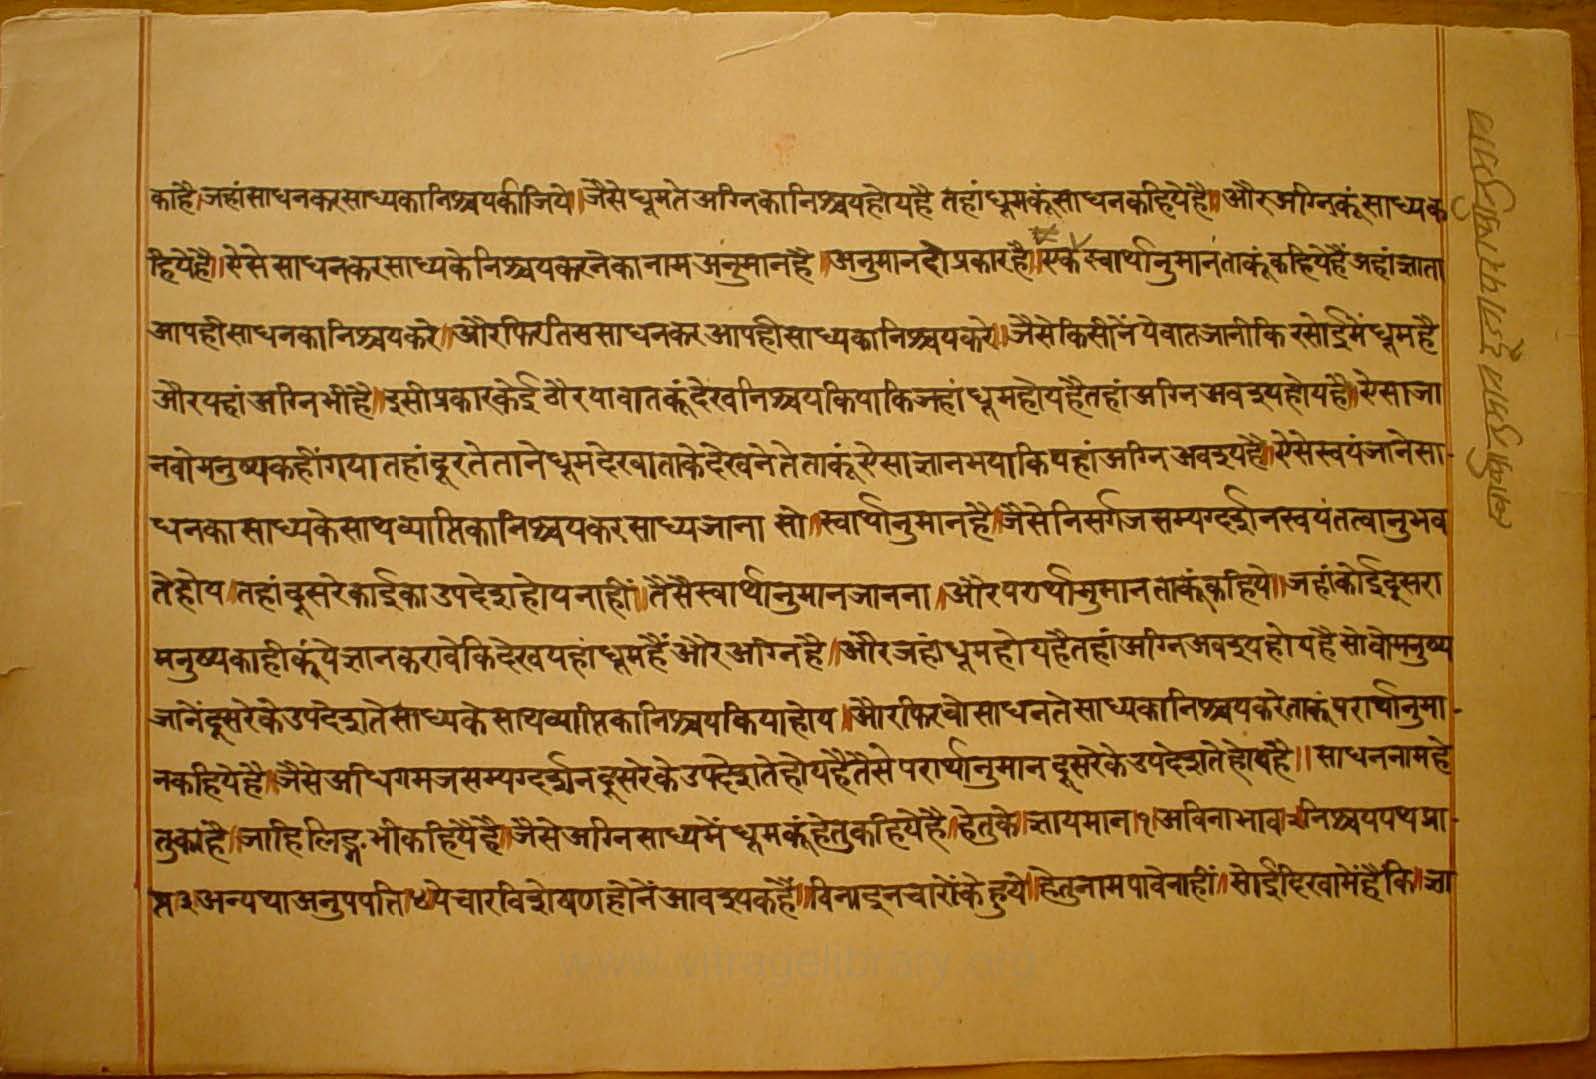 काहै॥जहांसाधनकरसाध्यकानिश्चयकीजिये॥जैसेधूमतेअग्निकानिश्चयहोयहै तहांधूमकूंसाधनकहियेहै॥औरअग्निकूंसाध्यक
हियेहै॥ऐसेसाधनकरसाध्यकेनिश्चयकरनेकानामअनुमानहै॥अनुमानदोप्रकारहै॥एकस्वार्थानुमानताकूंकहियेहैंजहांज्ञाता
आपहीसाधनकानिश्चयकरे॥औरफिरतिससाधनकरआपहीसाध्यकानिश्चयकरे॥जैसेकिसीनेंयेवातजानीकिरसोईमेंधूमहै
औरयहांअग्निभीहै॥इसीप्रकारकेईठौरयावातकूंदेखनिश्चयकियाकिजहांधूमहोयहैतहांअग्निअवश्यहोयहै॥ऐसाजा
नवोमनुष्यकहींगयातहांदूरतेतानेधूमदेखाताकेदेखनेतेताकूंऐसाज्ञानभयाकियहांअग्निअवश्यहै॥ऐसेस्वयंजानेसा-
धनकासाध्यकेसाथव्याप्तिकानिश्चयकरसाध्यजाना सो॥स्वार्थानुमानहै॥जैसेनिसर्गजसम्यग्दर्शनस्वयंतत्वानुभव
तेहोय॥तहांदूसरेकाईकाउपदेशहोयनाहीं॥तैसैस्वार्थानुमानजानना॥औरपरार्थानुमानताकूंकहिये॥जहांकोईदूसरा
मनुष्यकाहीकूंयेज्ञानकरावेकिदेखयहांधूमहैंऔरअग्निहै॥औरजहांधूमहोयहैतहांअग्निअवश्यहोयहैसोवोमनुष्य
जानेंदूसरेकेउपदेशतेसाध्यकेसाथव्याप्तिकानिश्चयकियाहोय॥औरफिरवोसाधनतेसाध्यकानिश्चयकरेताकूंपरार्थानुमा-
नकहियेहै॥जैसेअधिगमजसम्यग्दर्शनदूसरेकेउपदेशतेहोयहैतैसेपरार्थानुमानदूसरेकेउपदेशतेहोयहै॥साधननामहे
तुकाहै॥जाहिलिङ्गभीकहियैहै॥जैसेअग्निसाध्यमेंधूमकूंहेतुकहियेहै॥हेतुके॥ज्ञायमान॥१॥अविनाभाव२निश्चयपथप्रा-
प्त३अन्यथाअनुपपति॥४येचारविशेषणहोनेंआवश्यकहैं॥विनाइनचारोंकेहुये॥हेतुनामपावेनाहीं॥सोईदिखामेंहैकि॥ज्ञा